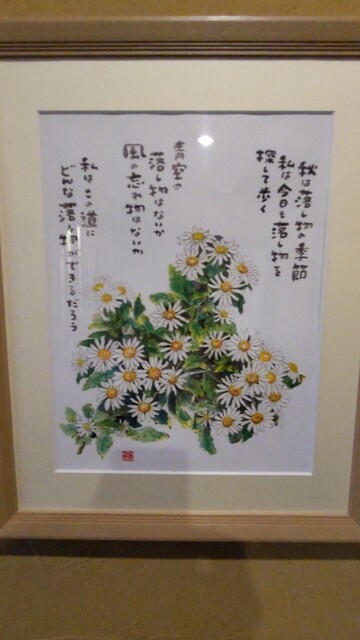 秋は落し物の季節
私は今日も落し物を
探して歩く
青空の
落し物はないか
風の忘れ物はないか
私はこの道に
どんな落し物ができるだろう